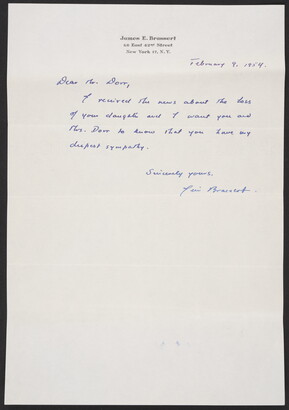 James E. Brassert
52 East 42nd Street
New York 17, N.Y.
February 9, 1954.
Dear Mr. Dorr,
I received the news about the loss
of your daughter and I want you and
Mrs. Dorr to know that you have my
deepest sympathy.
Sincerely yours,
Jim Brassert